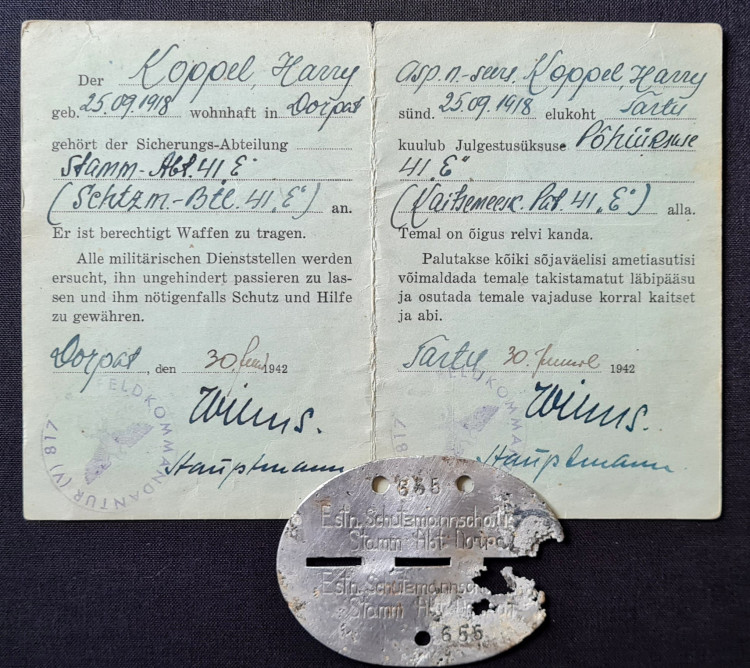 Der Koppel, Harry
geb. 25.09.1918 wohnhaft in Dorpat
gehört der Sicherungs-Abteilung
Stamm-Abt. 41 „E"
(Schtzm.-Btl. 41 „E") an.
Er ist berechtigt Waffen zu tragen.
Alle militärischen Dienststellen werden
ersucht, ihn ungehindert passieren zu las-
sen und ihm nötigenfalls Schutz und Hilfe
zu gewähren.
Dorpat, den 30. Juni 1942
Wilms.
Hauptmann
FELDKOMMANDANTUR (V) 817
asp. n.-seers. Koppel, Harry
sünd. 25.09.1918 elukoht Tartu
kuulub Julgestusüksuse Põhiüksuse
41 „E"
(Kaitsemeesk. Pat. 41 „E") alla.
Temal on õigus relvi kanda.
Palutakse kõiki sõjaväelisi ametiasutisi
võimaldada temale takistamatut läbipääsu
ja osutada temale vajaduse korral kaitset
ja abi.
Tartu 30. juunil 1942
Wilms.
Hauptmann
FELDKOMMANDANTUR 817
655
Estn. Schutzmannschaft
Stamm Abt Dorpat
Estn. Schutzmannsch
Stamm Abt
655